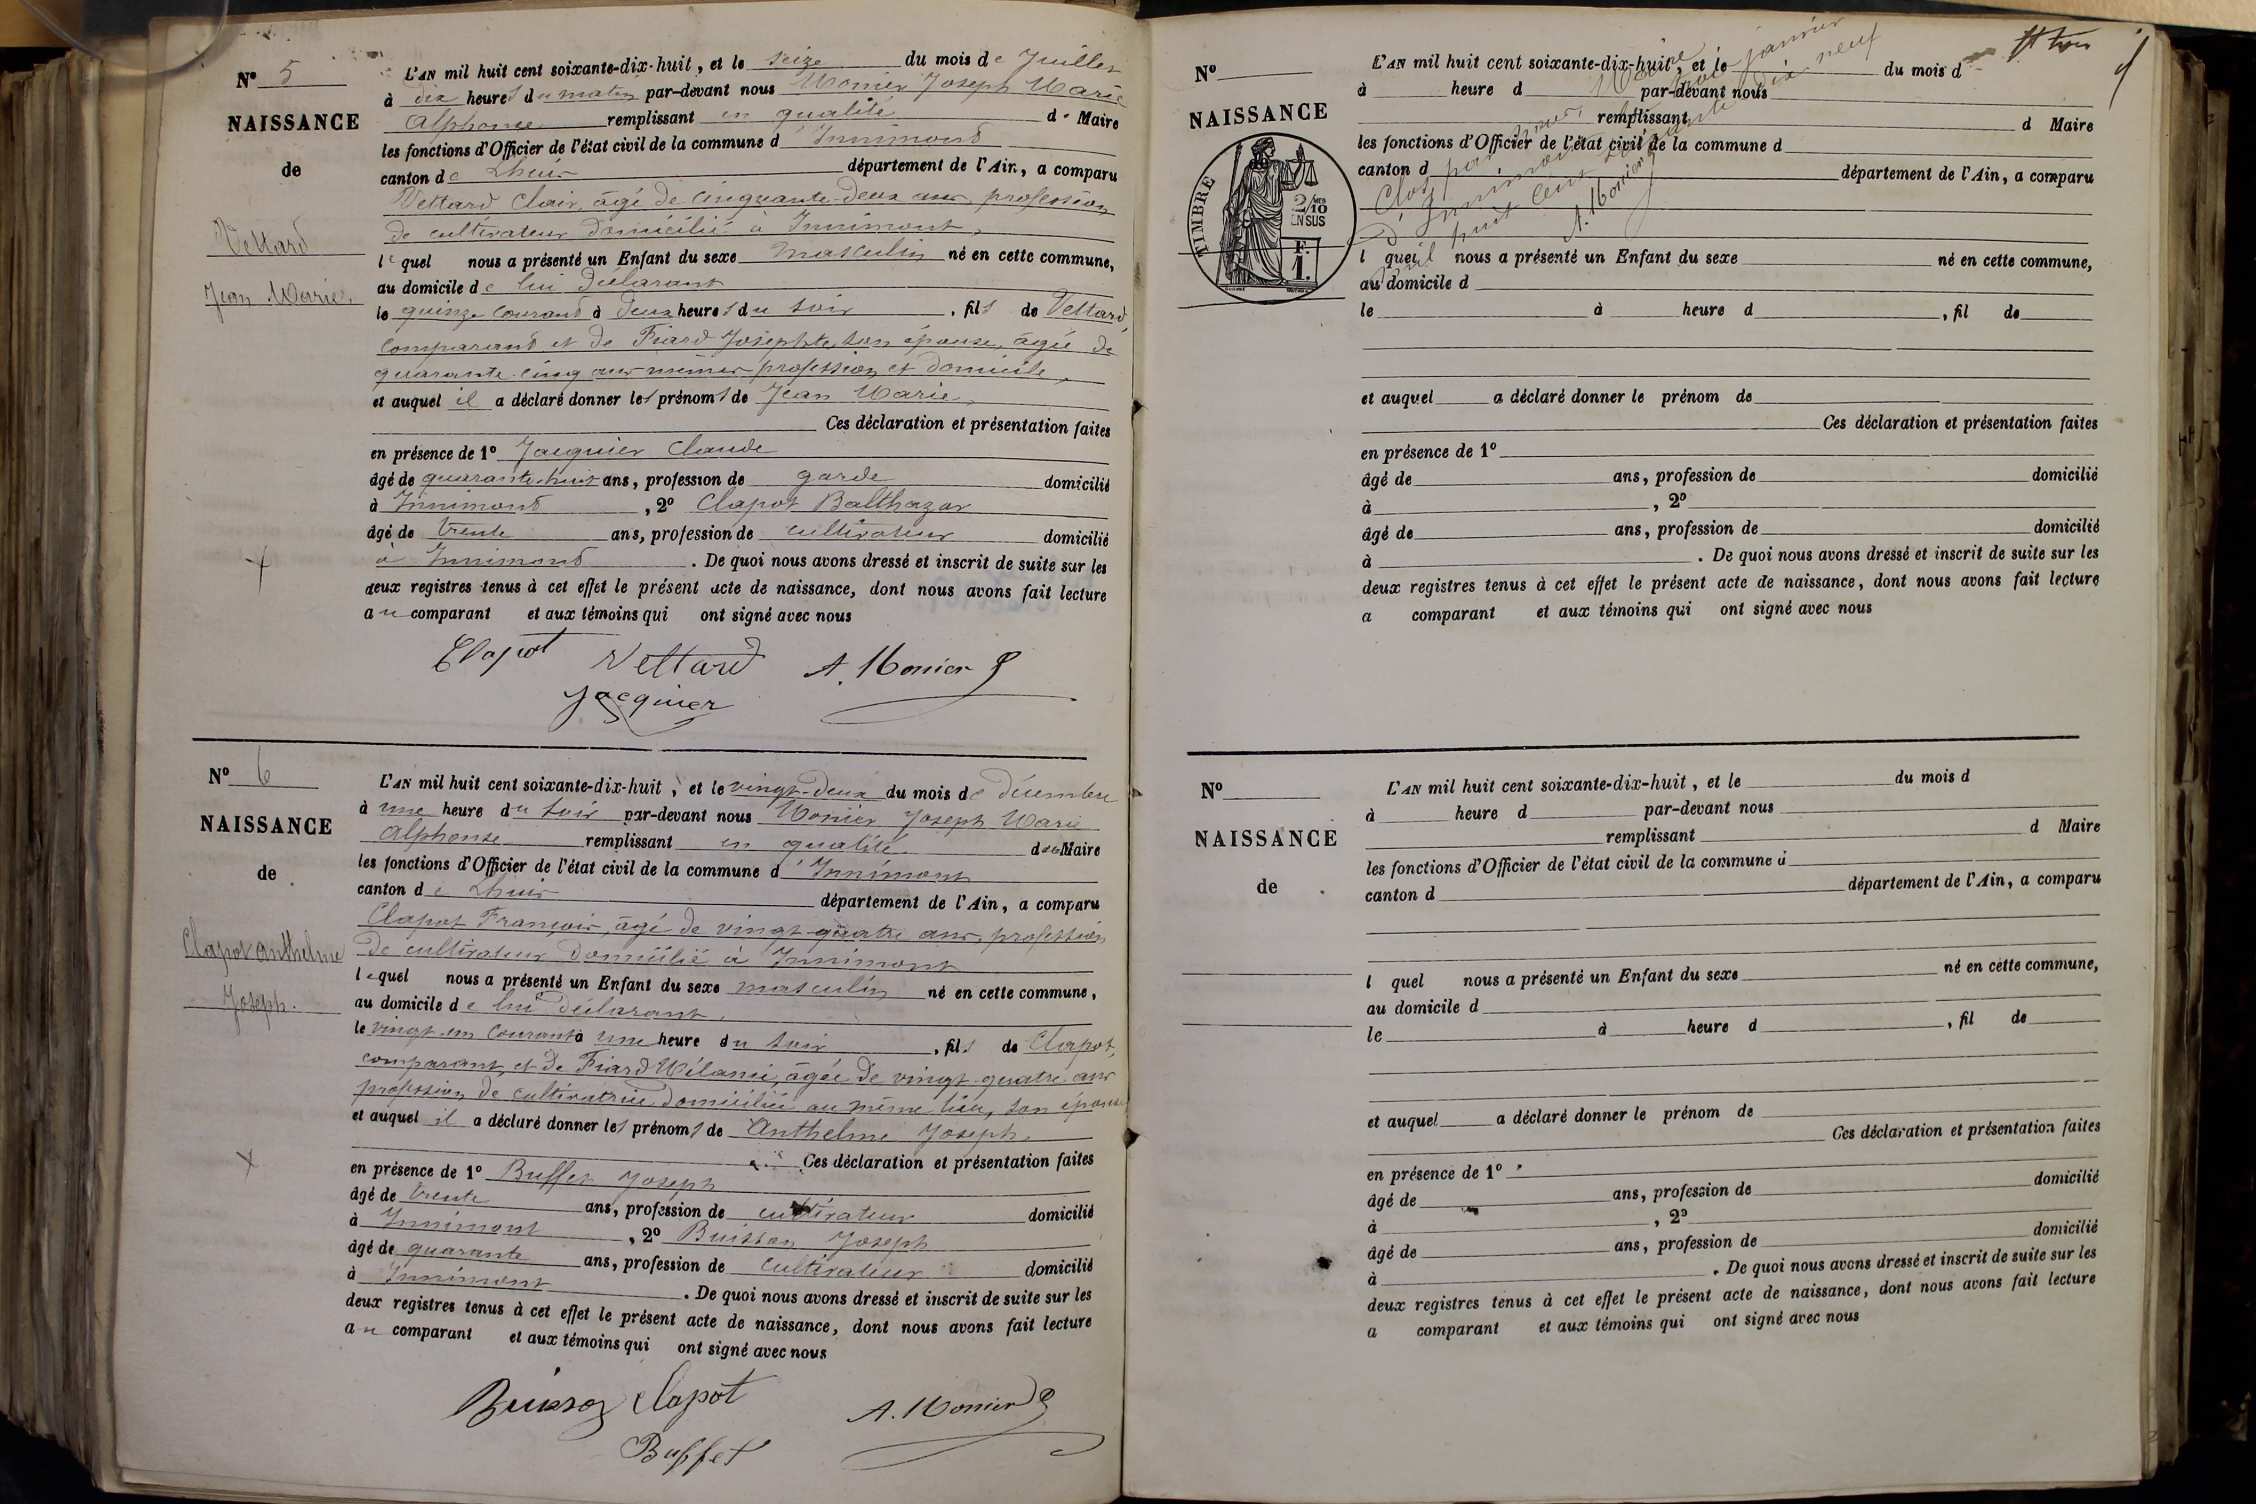 N° 5
NAISSANCE
de
Vettard
Jean Marie
L'AN mil huit cent soixante-dix-huit, et le seize du mois de Juillet
à dix heures du matin par-devant nous Monier Joseph Marie
Alphonse remplissant en qualité de Maire
les fonctions d'Officier de l'état civil de la commune d'Innimond
canton de Lhuis département de l'Ain, a comparu
Vettard Clair, âgé de cinquante-deux ans, profession
de cultivateur domicilié à Innimont,
lequel nous a présenté un Enfant du sexe masculin né en cette commune,
au domicile de lui Déclarant
le quinze courant à deux heures du soir, fils de Vettard,
comparant, et de Fiard Josephte, son épouse, âgée de
quarante cinq ans mêmes profession et domicile,
et auquel il a déclaré donner les prénoms de Jean Marie,
Ces déclaration et présentation faites
en présence de 1° Jacquier Claude
âgé de quarante-huit ans, profession de garde domicilié
à Innimond, 2° Clapot Balthazar
âgé de trente ans, profession de cultivateur domicilié
à Innimond. De quoi nous avons dressé et inscrit de suite sur les
deux registres tenus à cet effet le présent acte de naissance, dont nous avons fait lecture
au comparant et aux témoins qui ont signé avec nous
Clapot Vettard A. Monier
Jacquier
N° 6
NAISSANCE
de
Clapot Anthelme
Joseph.
L'AN mil huit cent soixante-dix-huit, et le vingt-deux du mois de décembre
à une heure du soir par-devant nous Monier Joseph Marie
Alphonse remplissant en qualité de Maire
les fonctions d'Officier de l'état civil de la commune d'Innimont
canton de Lhuis département de l'Ain, a comparu
Clapot François, âgé de vingt-quatre ans, profession
de cultivateur domicilié à Innimont
lequel nous a présenté un Enfant du sexe masculin né en cette commune,
au domicile de lui déclarant,
le vingt-un courant à une heure du soir, fils de Clapot,
comparant, et de Fiard Mélanie, âgée de vingt-quatre ans
profession de cultivatrice domiciliée au même lieu, son épouse
et auquel il a déclaré donner les prénoms de Anthelme Joseph,
Ces déclaration et présentation faites
en présence de 1° Buffet Joseph
âgé de trente ans, profession de cultivateur domicilié
à Innimont, 2° Buisson Joseph
âgé de quarante ans, profession de cultivateur domicilié
à Innimont. De quoi nous avons dressé et inscrit de suite sur les
deux registres tenus à cet effet le présent acte de naissance, dont nous avons fait lecture
au comparant et aux témoins qui ont signé avec nous
Buisson Clapot A. Monier
Buffet
N°
NAISSANCE
TIMBRE
2/10
EN SUS
F.
1.
L'AN mil huit cent soixante-dix-huit, et le du mois d
à heure d par-devant nous
remplissant d Maire
les fonctions d'Officier de l'état civil de la commune d
canton d département de l'Ain, a comparu
l quel nous a présenté un Enfant du sexe né en cette commune,
au domicile d
le à heure d, fil de
et auquel a déclaré donner le prénom de
Ces déclaration et présentation faites
en présence de 1°
âgé de ans, profession de domicilié
à, 2°
âgé de ans, profession de domicilié
à. De quoi nous avons dressé et inscrit de suite sur les
deux registres tenus à cet effet le présent acte de naissance, dont nous avons fait lecture
a comparant et aux témoins qui ont signé avec nous
Clos par nous, Maire
d'Innimont janvier
mil huit cent soixante dix neuf
A. Monier
N°
NAISSANCE
de
L'AN mil huit cent soixante-dix-huit, et le du mois d
à heure d par-devant nous
remplissant d Maire
les fonctions d'Officier de l'état civil de la commune d
canton d département de l'Ain, a comparu
l quel nous a présenté un Enfant du sexe né en cette commune,
au domicile d
le à heure d, fil de
et auquel a déclaré donner le prénom de
Ces déclaration et présentation faites
en présence de 1°
âgé de ans, profession de domicilié
à, 2°
âgé de ans, profession de domicilié
à. De quoi nous avons dressé et inscrit de suite sur les
deux registres tenus à cet effet le présent acte de naissance, dont nous avons fait lecture
a comparant et aux témoins qui ont signé avec nous